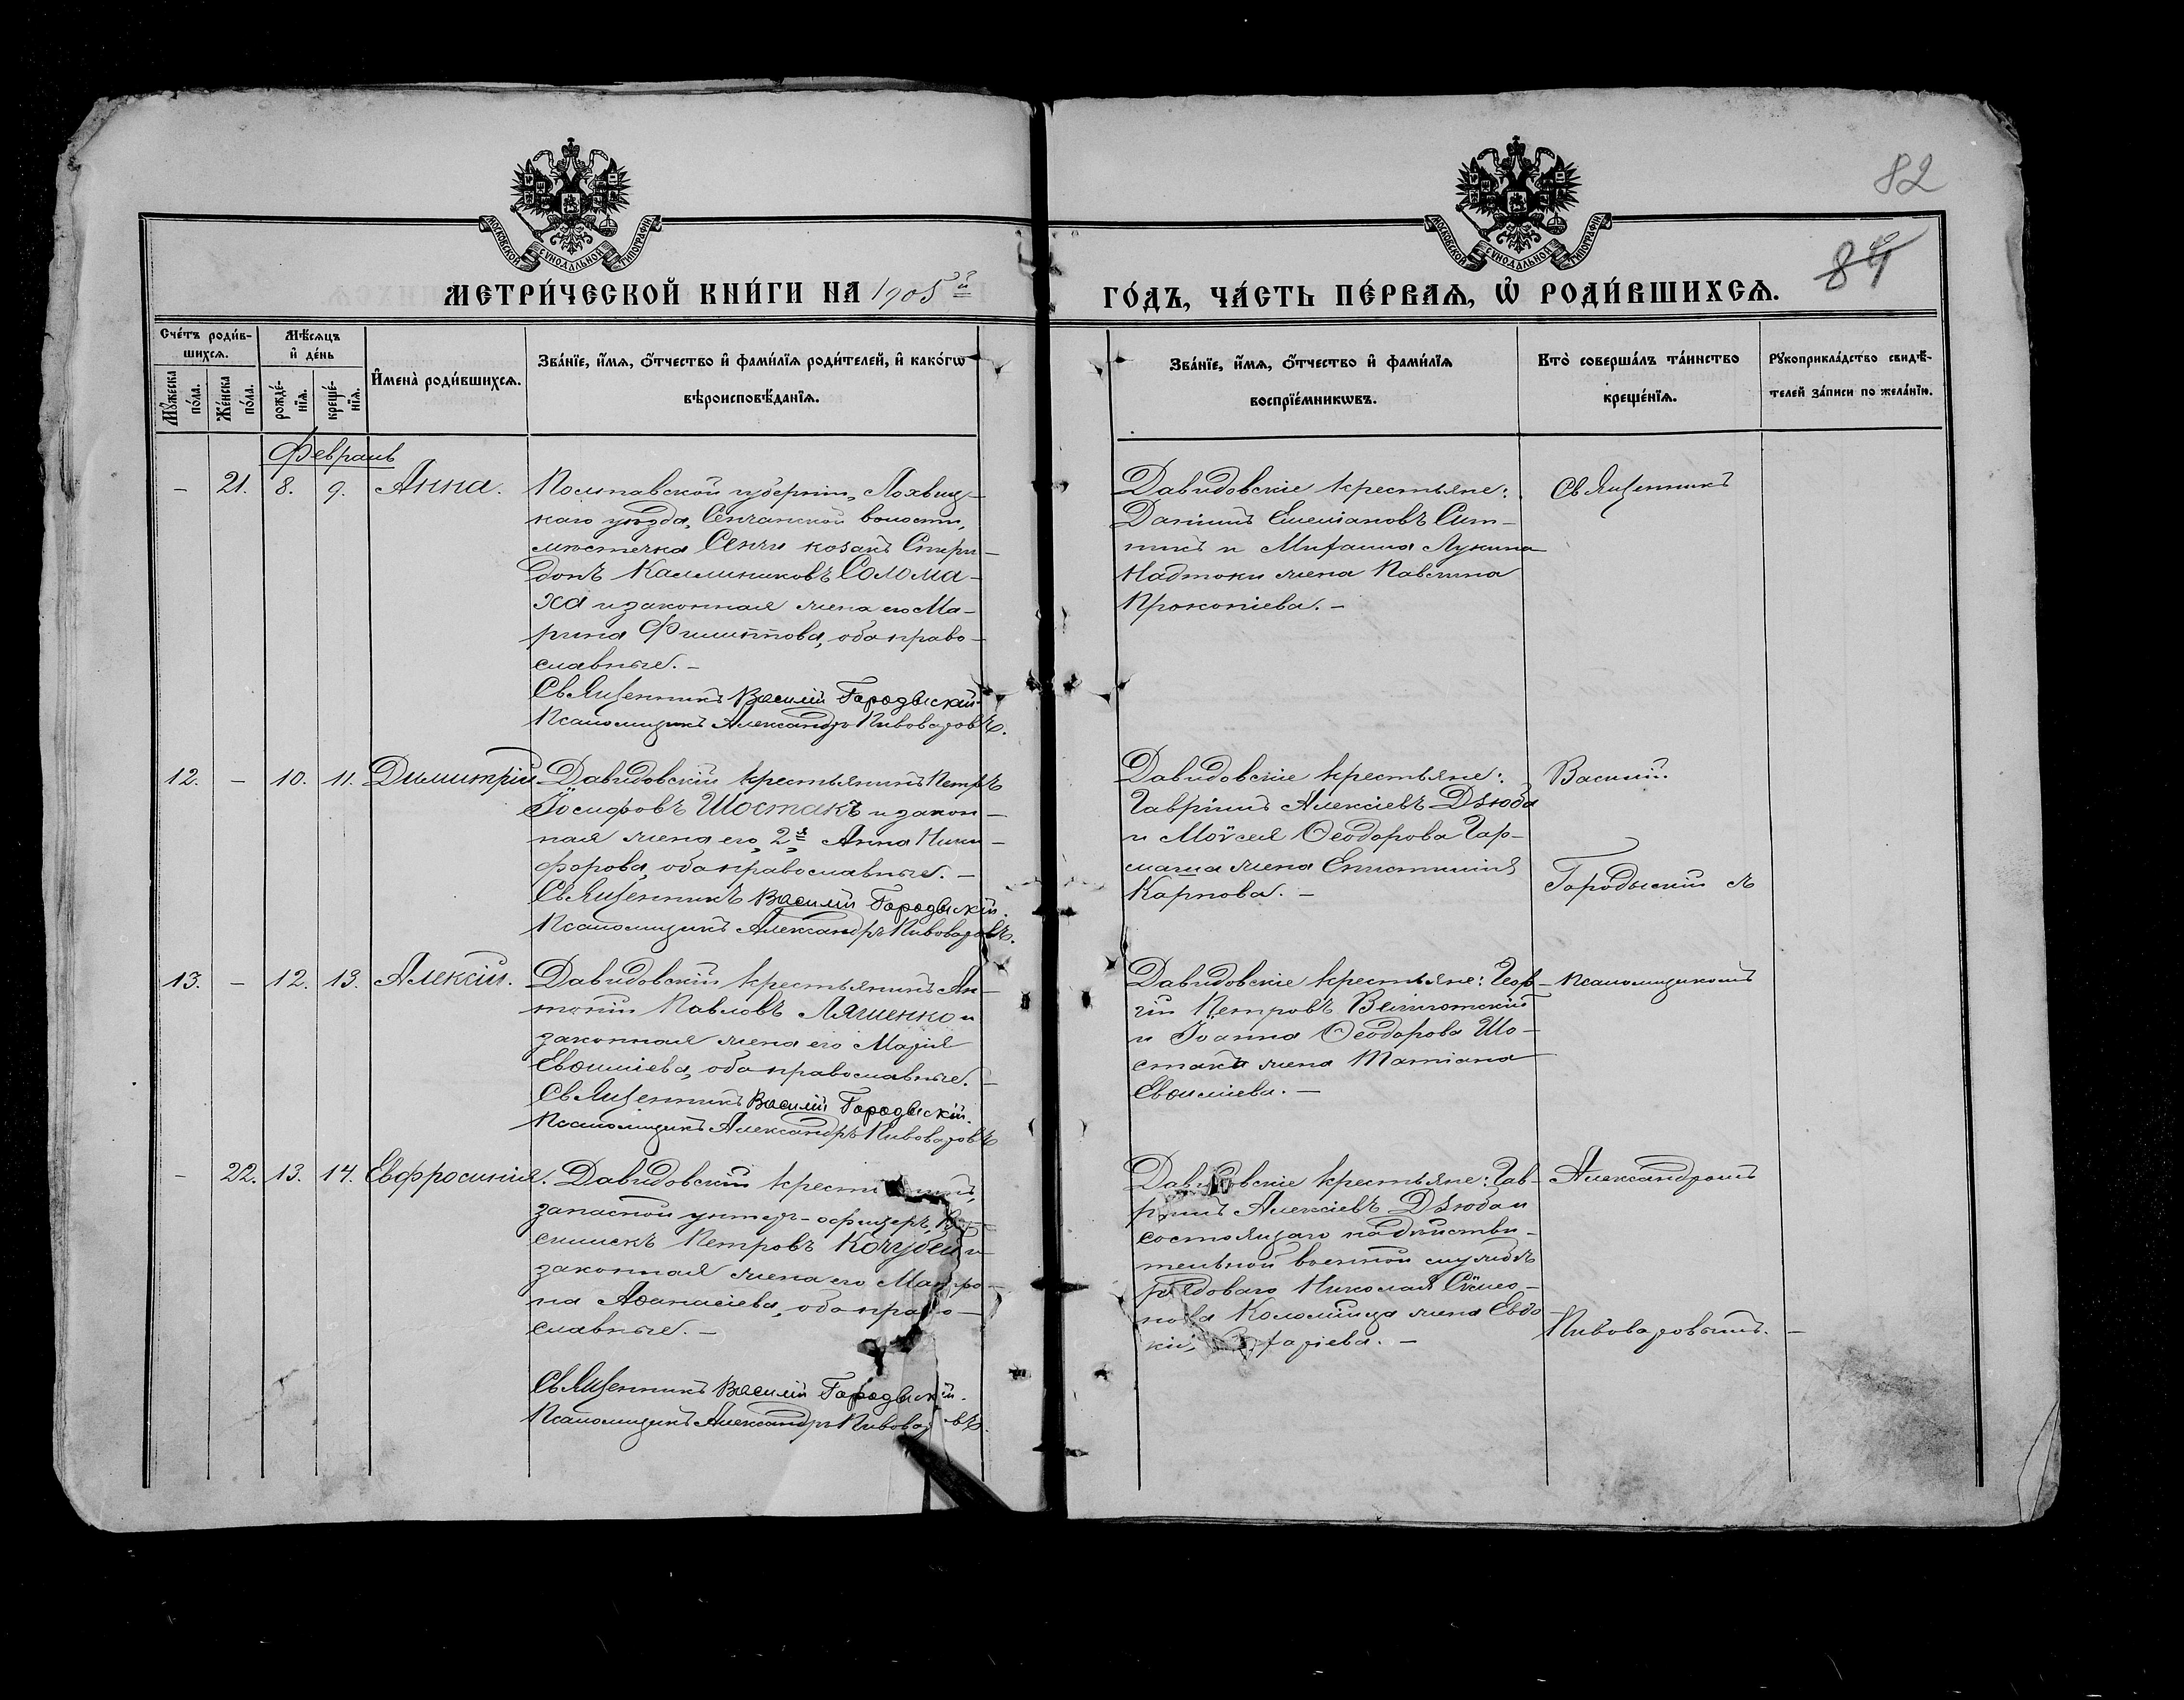 82
84
МОСКОВСКОЙ СУНОДАЛЬНОЙ ТИПОГРАФІИ
МОСКОВСКОЙ СУНОДАЛЬНОЙ ТИПОГРАФІИ
МЕТРИ́ЧЕСКОЙ КНИ́ГИ НА 1905й ГО́ДЪ, ЧА́СТЬ ПЕ́РВАѦ, Ѡ҆ РОДИ́ВШИХСѦ.
Сче́тъ роди́в-
шихсѧ.
Мꙋ́жеска по́ла.
Же́нска по́ла.
Мѣ́сѧцъ
и҆ де́нь
рожде́-
нїѧ.
креще́-
нїѧ.
И҆мена̀ роди́вшихсѧ.
Зва́нїе, и҆́мѧ, ѻ҆́тчество и҆ фами́лїѧ роди́телей, и҆ како́гѡ
вѣроисповѣ́данїѧ.
Зва́нїе, и҆́мѧ, ѻ҆́тчество и҆ фами́лїѧ
воспрїе́мникѡвъ.
Кто̀ соверша́лъ та́инство
креще́нїѧ.
Рꙋкоприкла́дство свидѣ́-
телей за́писи по жела́нїю.
Февраль
– 21. 8. 9. Анна.
Полтавской губерніи, Лохвиц-
каго уѣзда, Сенчанской волости,
мѣстечка Сенчи козакъ Спири-
донъ Каллиниковъ Солома-
ха и законная жена его Ма-
рина Филиппова, оба право-
славные. –
Священникъ Василій Городыскій.
Псаломщикъ Александръ Пивоваровъ.
Давидовскіе крестьяне:
Даніилъ Емеліановъ Сит-
никъ и Михаила Лукина
Надтоки жена Павлина
Прокопіева. –
Священникъ
12. – 10. 11. Димитрій
Давидовскій крестьянинъ Петръ
Іосифовъ Шостакъ и закон-
ная жена его, 2я Анна Ники-
форова, оба православные. –
Священникъ Василій Городыскій.
Псаломщикъ Александръ Пивоваровъ.
Давидовскіе крестьяне:
Гавріилъ Алексіевъ Дзюба
и Моѵсея Ѳеодорова Гар-
маша жена Епистимія
Карпова. –
Василій
Городыскій съ
13. – 12. 13. Алексій.
Давидовскій крестьянинъ Ан-
тоній Павловъ Ляшенко и
законная жена его Марія
Евѳиміева, оба православные. –
Священникъ Василій Городыскій.
Псаломщикъ Александръ Пивоваровъ
Давидовскіе крестьяне: Геор-
гій Петровъ
и Іоанна Ѳеодорова Шо-
стака жена Татіана
Евѳиміева. –
псаломщикомъ
– 22. 13. 14. Евфросинія.
Давидовскій
запасной унтеръ-офицеръ,
Петровъ Кочубей и
законная жена его Матро-
на Аѳанасіева, оба право-
славные. –
Священникъ Василій Городыскій.
Псаломщикъ Александръ
Давидовскіе крестьяне: Гав-
ріилъ Алексіевъ Дзюба и
состоящаго на дѣйстви-
тельной военной службѣ
рядоваго Николая Сѵмео-
нова Коломійца жена Евдо-
кія
Александромъ
Пивоваровымъ. –